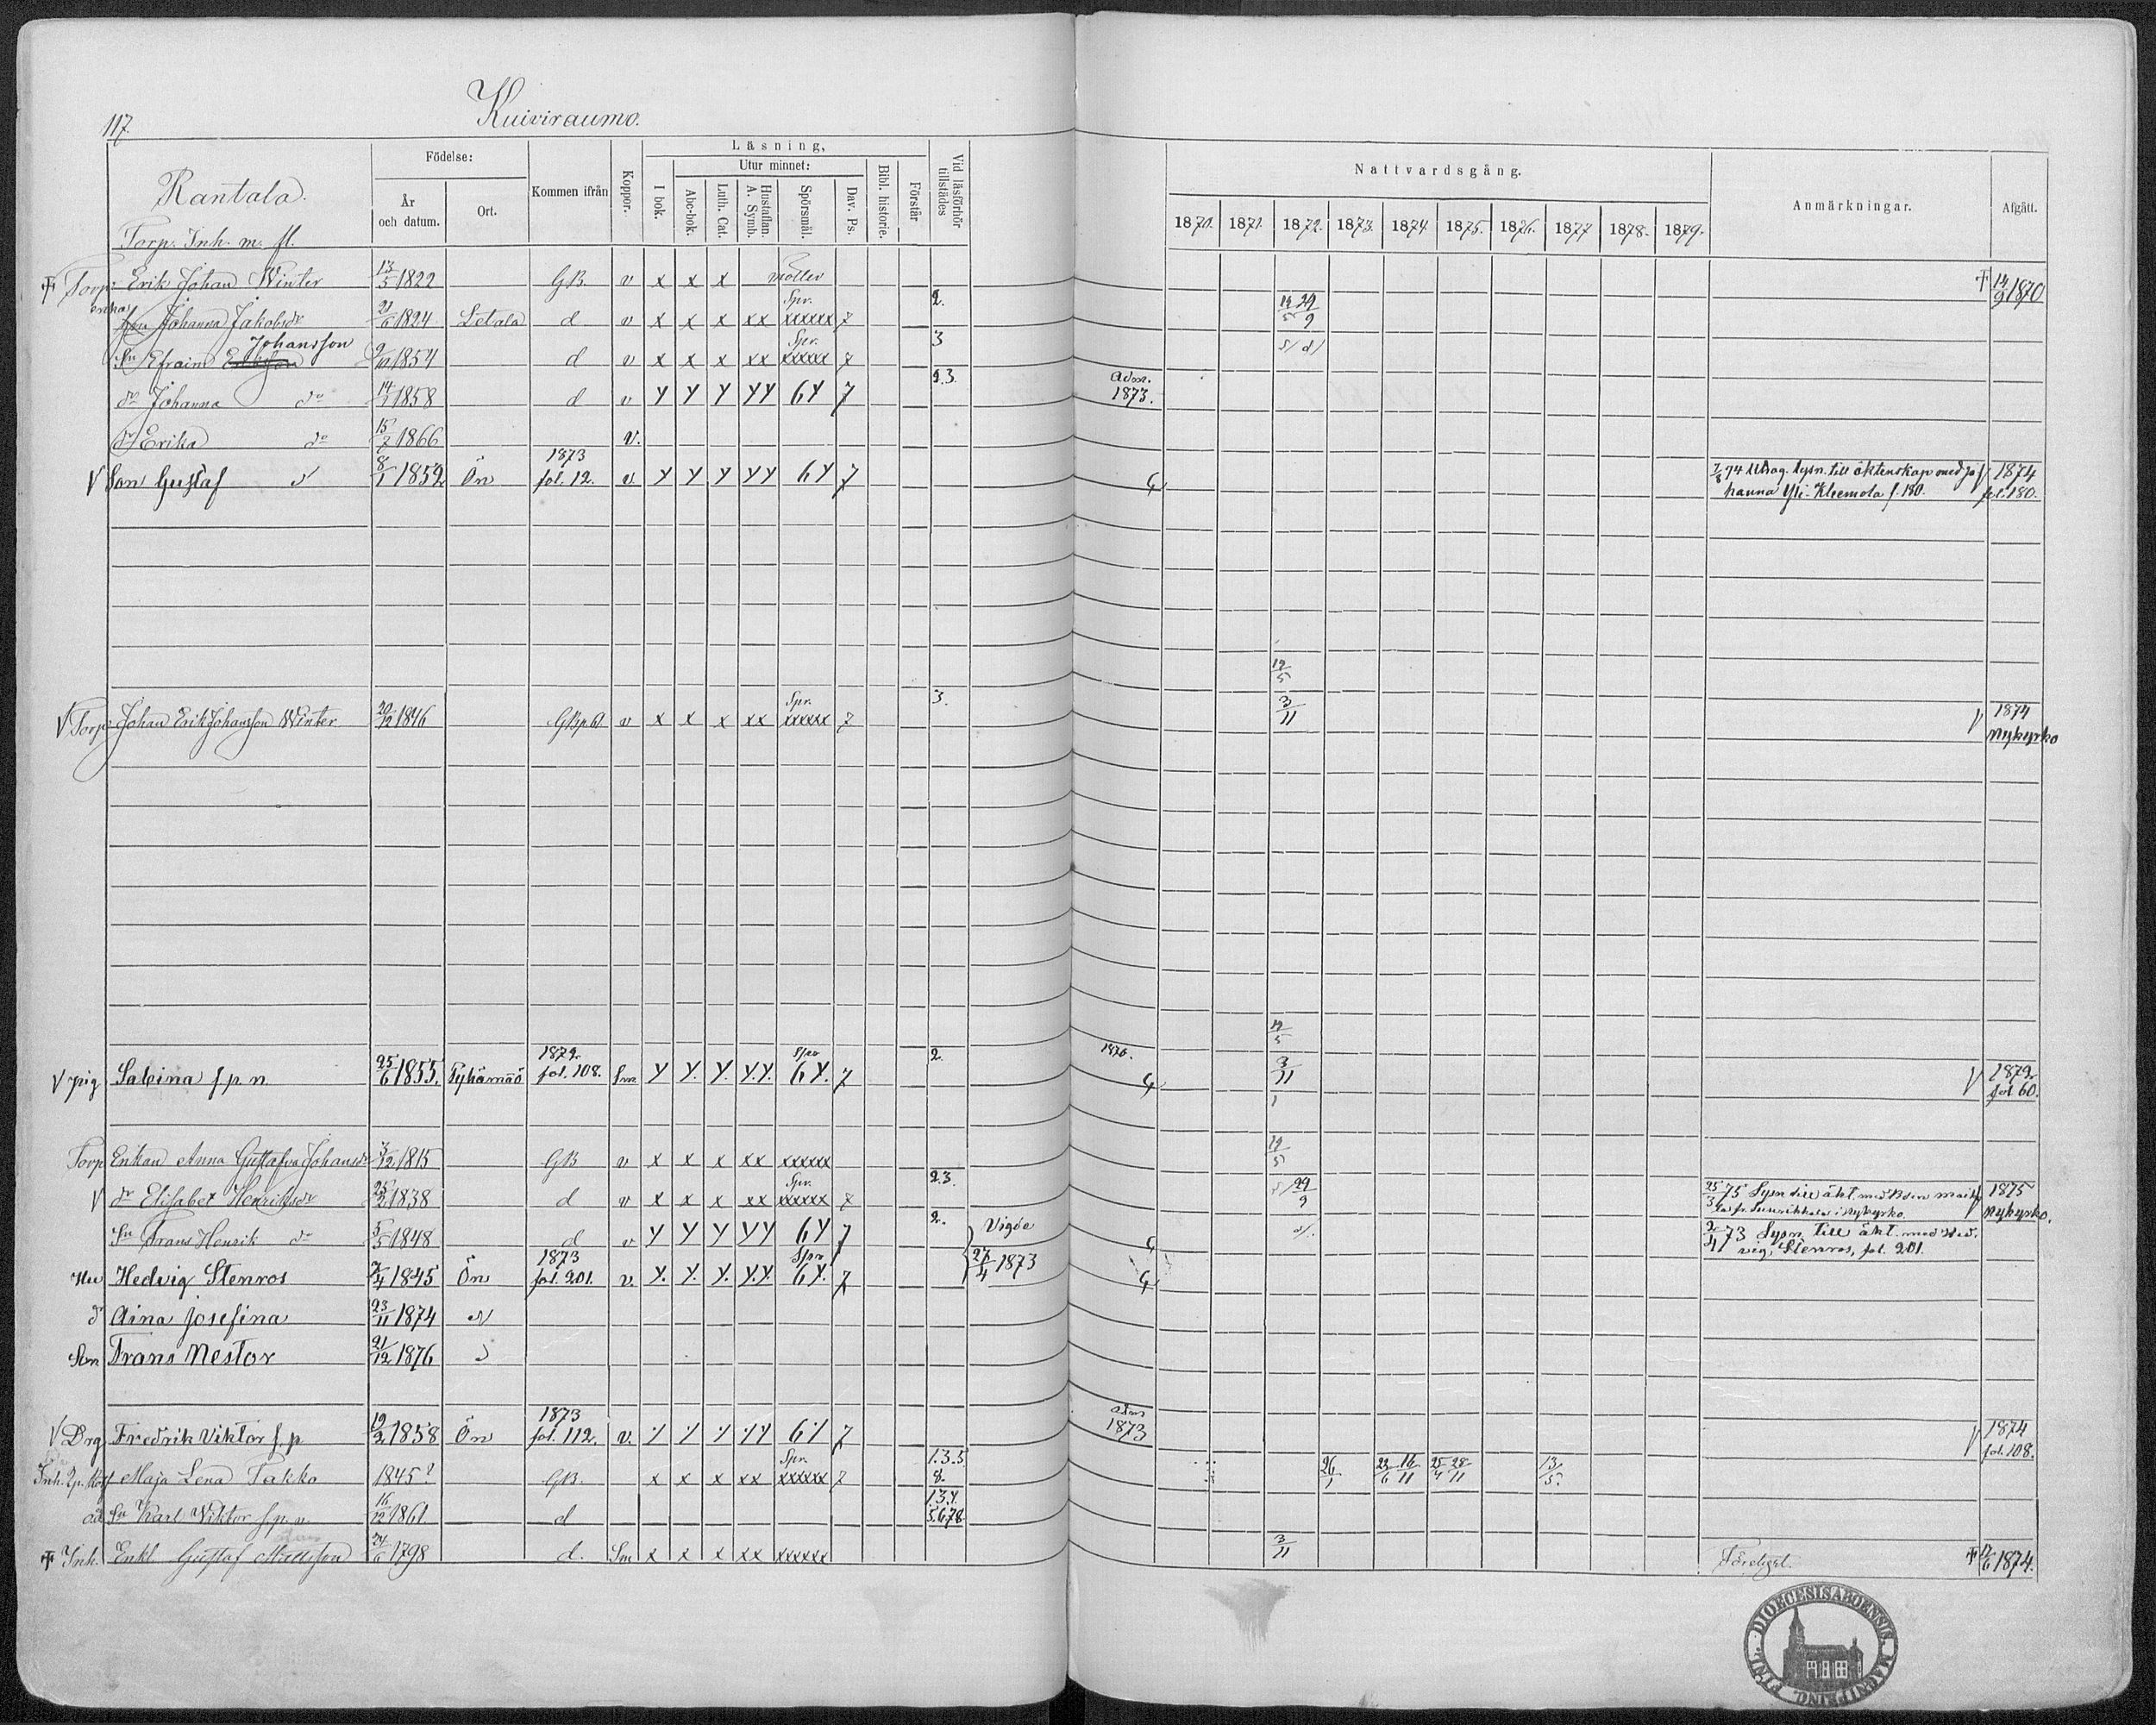 117.
Kuiviraumo.
Rantala.
Torp. Inh. m. fl.
Födelse:
År och datum.
Ort.
Kommen ifrån
Koppor.
Läsning,
I bok.
Utur minnet:
Abc-bok.
Luth. Cat.
Hustaflan. A. Symb.
Spörsmål.
Dav. Ps.
Bibl. historie.
Förstår
Vid läsförhör tillstädes
Nattvardsgång.
1870. 1871. 1872. 1873. 1874. 1875. 1876. 1877 1878. 1879.
Anmärkningar.
Afgått.
Torp: Erik Johan Winter 13/5 1822 GB v x x x † 14/9 1870
enka Johanna Jakobsdr 21/6 1824 Letala d v x x x xx Spr. xxxxxx 7 2. 29/9
Johansson
Sn Efraim 9/10 1854 d v x x x xx Spr. xxxxxx 7 3
dr Johanna do 14/7 1858 d v y y y yy 6y 7 2.3. Adm. 1873.
dr Erika do 15/2 1866 v.
V Son Gustaf 8/1 1852 Ön 1873 fol. 12. v. y y y yy 6y 7 7/8 74 Uttag. lysn. till äktenskap med Jo V 1874
hanna Yli-Kleemola f. 180. fol. 180.
19/5
V Torp: Johan Erik Johansson Winter 20/12 1846 GB p 61 v x x x xx Spr. xxxxxx 7 3. 3/11 V 1874 Nykyrko
19/5
V pig Sabina f.p.n. 25/6 1855. Pyhämaa 1872. fol. 108. Sm. y y. y. y.y. Spr 6y. 7 2. 1870. 3/11 V 1872 fol 60.
Torp Enkan Anna Gustafva Johansdr 1815 GB v x x x xx xxxxxx 19/5
V dr Elisabet Henriksdr 25/2 1838 d v x x x xx Spr. xxxxxx 7 2.3. 29/9 25/3 75 Lysn till äkt. med V 1875 Nykyrko.
Sn Frans Henrik do 5/5 1848 d v y y y yy 6y 7 2. Vigde 27/4 1873 2/4 73 Lysn. till äkt. med Hed-
vig Stenros, fol. 201.
Hu Hedvig Stenros 7/4 1845 Ön 1873 fol. 201. v. y. y. y. y.y. Spr 6y. 7
d Aina Josefina 23/11 1874
Son Frans Nestor 21/12 1876
V Drg Fredrik Viktor f.p 19/2 1858 Ön 1873 fol. 112. v. 6y 7 Adm 1873 V 1874 fol. 108.
Inh. Maja Lena Takko 1845? GB. x x x xx Spr. xxxxxx 7 1.3.5 8. 26/1 22/6 16/11 25/4 28/11 13/5.
Sn Karl Viktor f.p.n. 16/12 1861. d 1.3.4. 5.6.7.8
† Inh. Enkl Gustaf Mattsson 24/6 1798 d. Sm x x x xx xxxxxx 3/11 † 12/6 1874.
DIOECESIS ABOENSIS